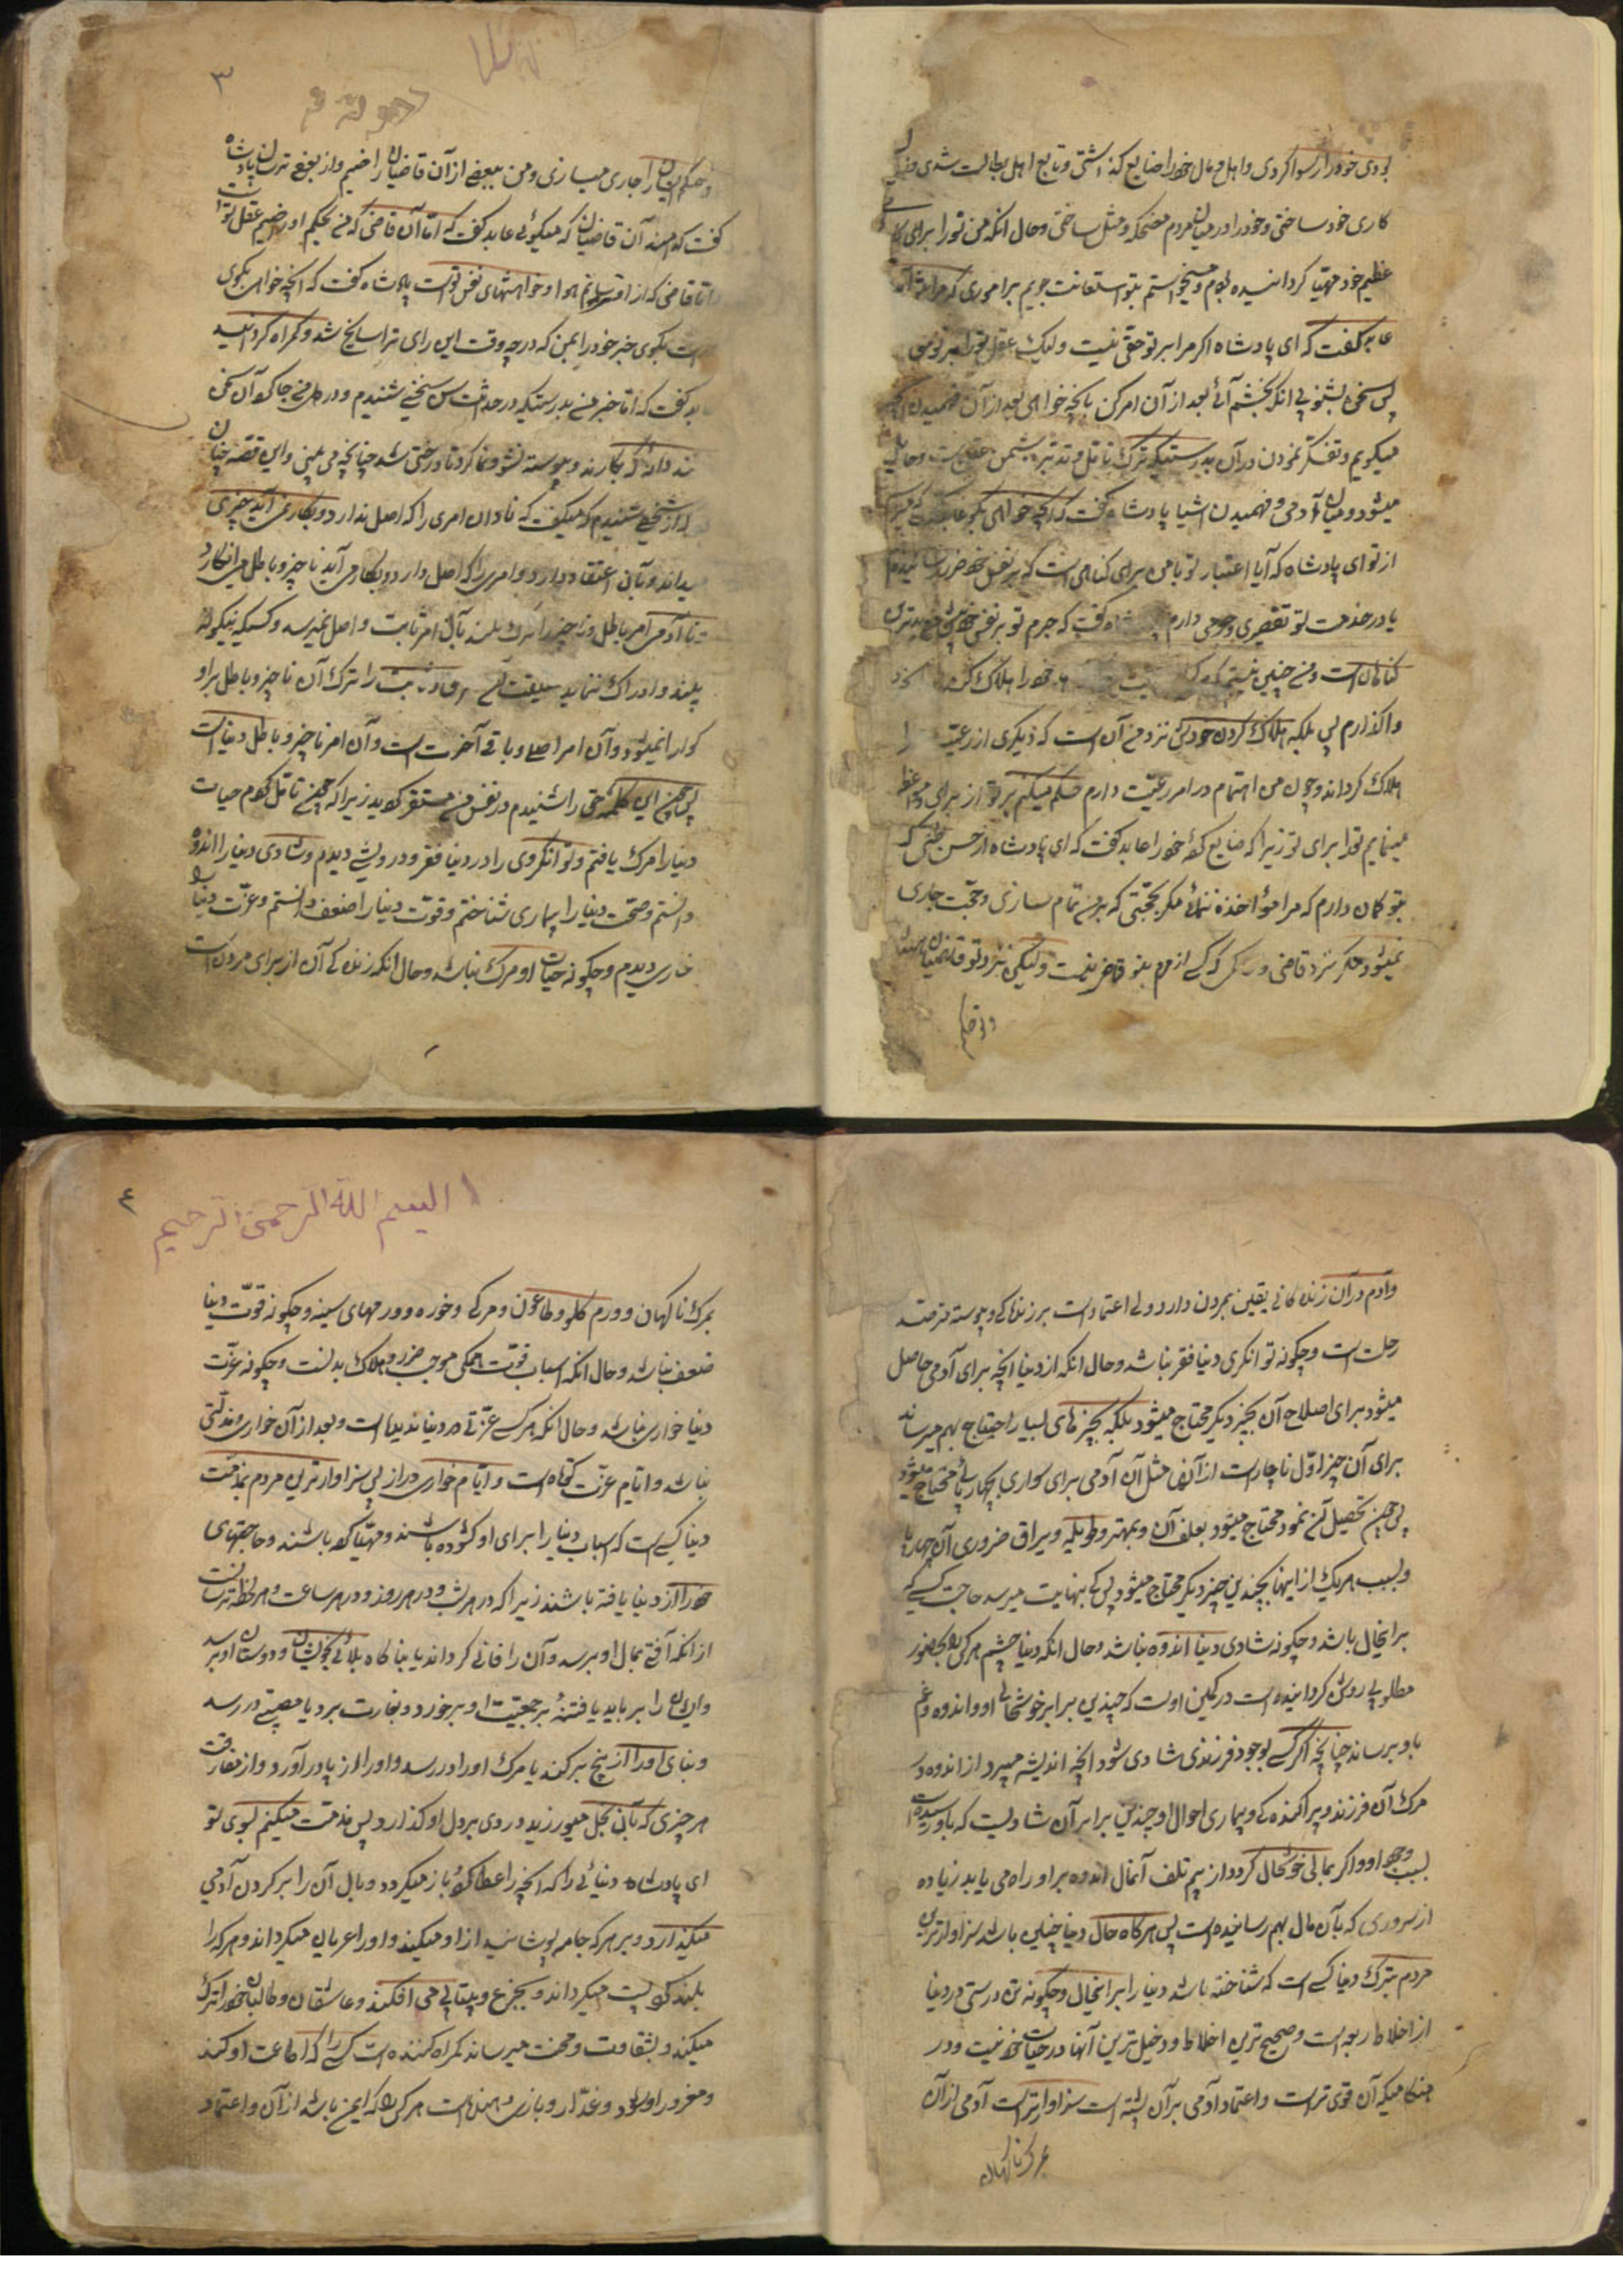 بودی خود را رسوا کردی و اهل و مال خود را ضایع گذاشتی و تابع اهل بطالت شدی و
کاری خود ساختی و خود را در میان مردم مضحکه و مثل ساختی و حال آنکه من تو را برای کا
عظیم خود مهیّا گردانیده بودم و میخواستم بتو استعانت جویم بر اموری که مرا
عابد گفت که ای پادشاه اگر مرا بر تو حقّی نیست و لیک عقل تو را بر تو
پس سخن بشنو بی آنکه بخشم آئی بعد از آن امر کن بآنچه خواهی بعد از آن فهمیدن
میگویم و تفکّر نمودن در آن بدرستیکه ترک تأمّل و تدبّر دشمن عقل است و حایل
میشود میان آدمی و فهمیدن اشیا پادشاه گفت که آنچه خواهی بگو عابد گفت
از تو ای پادشاه که آیا اعتبار تو با من برای گناهی است که بر نفس خود ضرر رسانیدم
یا در خدمت تو تقصیری و جرمی دارم پادشاه گفت که جرم تو بر نفس خویش نزد من بدترین
گناهان است و من چنین نیستم که خود را هلاک کند
واگذارم پس بلکه هلاک کردن خودش نزد من آن است که دیگری از رعیّت را
هلاک گرداند و چون من اهتمام در امر رعیّت دارم حکم میکنم بر تو از برای تو و
مینمایم تو را برای تو زیرا که ضایع کرده‌ای خود را عابد گفت که ای پادشاه از حسن ظنّی که
بتو گمان دارم که مرا مؤاخذه ننمائی مگر بحجّتی که بر من تمام سازی و حجّت جاری
نمیشود مگر نزد قاضی و کسی از مردم بتو قاضی نیست و لیکن نزد تو قاضیان هستند
و تو حکم
۳
و حکم ایشان را جاری میسازی و من ببعضی از آن قاضیان راضیم و از بعضی ترسان پادشاه
گفت که کدامند آن قاضیان که میگوئی عابد گفت که امّا آن قاضی که من بحکم او راضیم عقل تو است
و امّا قاضی که از او ترسانم هوا و خواهشهای نفس تو است پادشاه گفت که آنچه خواهی بگوی
و راست بگوی خبر خود را بمن که در چه وقت این رای ترا سانح شد و که گمراه گردانید
عابد گفت که امّا خبر من بدرستیکه در حداثت سن سخنی شنیدم و در دل من جا کرد آن سخن
مانند دانه که بکارند و پیوسته نشو و نما کرد تا درختی شد چنانچه می بینی و این قصّه چنان
که از شخصی شنیدم که میگفت که نادان امری را که اصل ندارد و بکار نمی آید چیزی
میداند و بآن اعتقاد دارد و امری را که اصل دارد و بکار می آید ناچیز و باطل می انگارد
و تا آدمی امر باطل و ناچیز را ترک نکند بآن امر ثابت و اصل نمیرسد و کسیکه نیکو نه
بیند و ادراک ننماید را ترک آن ناچیز و باطل بر او
گوارا نمیشود و آن امر اصلی و باقی آخرت است و آن امر ناچیز و باطل دنیاست
پس چون این کلمهٔ حق را شنیدم در نفس من مستقر گردید زیرا که چون تأمّل کردم حیات
دنیا را مرگ یافتم و توانگری را در دنیا فقر و درویشی دیدم و شادی دنیا را اندوه
دانستم و صحّت دنیا را بیماری شناختم و قوّت دنیا را ضعف دانستم و عزّت دنیا را
خاری دیدم و چگونه حیات او مرگ نباشد و حال آنکه زندگی آن از برای مردن است
وآدم در آن زندگانی یقین بمردن دارد و بی اعتماد است بر زندگی و پیوسته مترصّد
رحلت است و چگونه توانگری دنیا فقر نباشد و حال آنکه از دنیا آنچه برای آدمی حاصل
میشود برای اصلاح آن بچیز دیگر محتاج میشود بلکه بچیزهای بسیار احتیاج بهم میرساند
برای آن چیز اوّل ناچار است از آنها مثل آن آدمی برای سواری بچهارپائی محتاج میشود
پس چون تحصیل آن نمود محتاج میشود بعلف آن و مهتر و طویله و یراق ضروری آن چهارپا
و بسبب هر یک از اینها بچندین چیز دیگر محتاج میشود پس کی بنهایت میرسد حاجت کسی که
براینحال باشد و چگونه شادی دنیا اندوه نباشد و حال آنکه دنیا چشم هر کس را که بحضور
مطلوبی روشن گردانیده است در کمین اوست که چندین برابر خوشحالی او اندوه و غم
باو برساند چنانچه اگر کسی بوجود فرزندی شادی شود آنچه اندیشه میبرد از اندوه و
مرگ آن فرزند و پراکنده‌گی و بیماری احوال او چندین برابر آن شادیست که باو رسیده است
بسبب وجود او و اگر بمالی خوشحال گردد از بیم تلف آنمال اندوه بر او راه می یابد زیاده
از سروری که بآن مال بهم رسانیده است پس هرگاه حال دنیا چنین باشد سزاوارترین
مردم بترک دنیا کسی است که شناخته باشد دنیا را براینحال و چگونه تن درستی در دنیا
از اخلاط اربعه است و صحیح ترین اخلاط و دخیل ترین آنها در حیات خون نیست و در
هنگامیکه آن قوی تر است و اعتماد آدمی بر آن بیشتر است سزاوارتر است آدمی از آن
بمرگ ناگهان
٤
ا البسم الله الرحمن الرحیم
بمرگ ناگهان و ورم گلو و طاعون و مرگی و خوره و ورمهای سینه و چگونه قوّت دنیا
ضعف نباشد و حال آنکه اسباب قوّت همگی موجب ضرر و هلاک بدنست و چگونه عزّت
دنیا خواری نباشد و حال آنکه هر کس عزّتی در دنیا ندیده است و بعد از آن خواری و مذلّتی
نباشد و ایّام عزّت کوتاه است و ایّام خواری دراز پس سزاوارترین مردم بمذمّت
دنیا کسی است که اسباب دنیا را برای او گشوده باشند و مهیّا کرده باشند و حاجتهای
خود را از دنیا یافته باشند زیرا که در هر شب و در هر روز و در هر ساعت و هر لحظه ترسانست
از آنکه آفتی بمال او برسد و آن را فانی گرداند یا بناگاه بلائی بخویشان و دوستان او برسد
و ایشان را برباید یا فتنهٔ بر جمعیّت او برخورد و بغارت برد یا مصیبتی در رسد
و بنای او را از بیخ برکند یا مرگ او را در رسد و او را از پا درآورد و از مفارقت
هر چیزی که بآن بخل میورزید دردی بر دل او گذارد پس مذمّت میکنم بسوی تو
ای پادشاه دنیائی را که آنچه را عطا کرد باز میگیرد و وبال آن را بر گردن آدمی
میگذارد و بر هر که جامه پوشانید از او میکند و او را عریان میگرداند و هر که را
بلند کرد پست میگرداند و بجزع و بیتابی می افکند و عاشقان و طالبان خود را ترک
میکند و بشقاوت و محنت میرساند گمراه کننده است کسی را که اطاعت او کند
و مغرور او شود و غدّار و بازی دهنده است هر کس را که ایمن باشد از آن و اعتماد